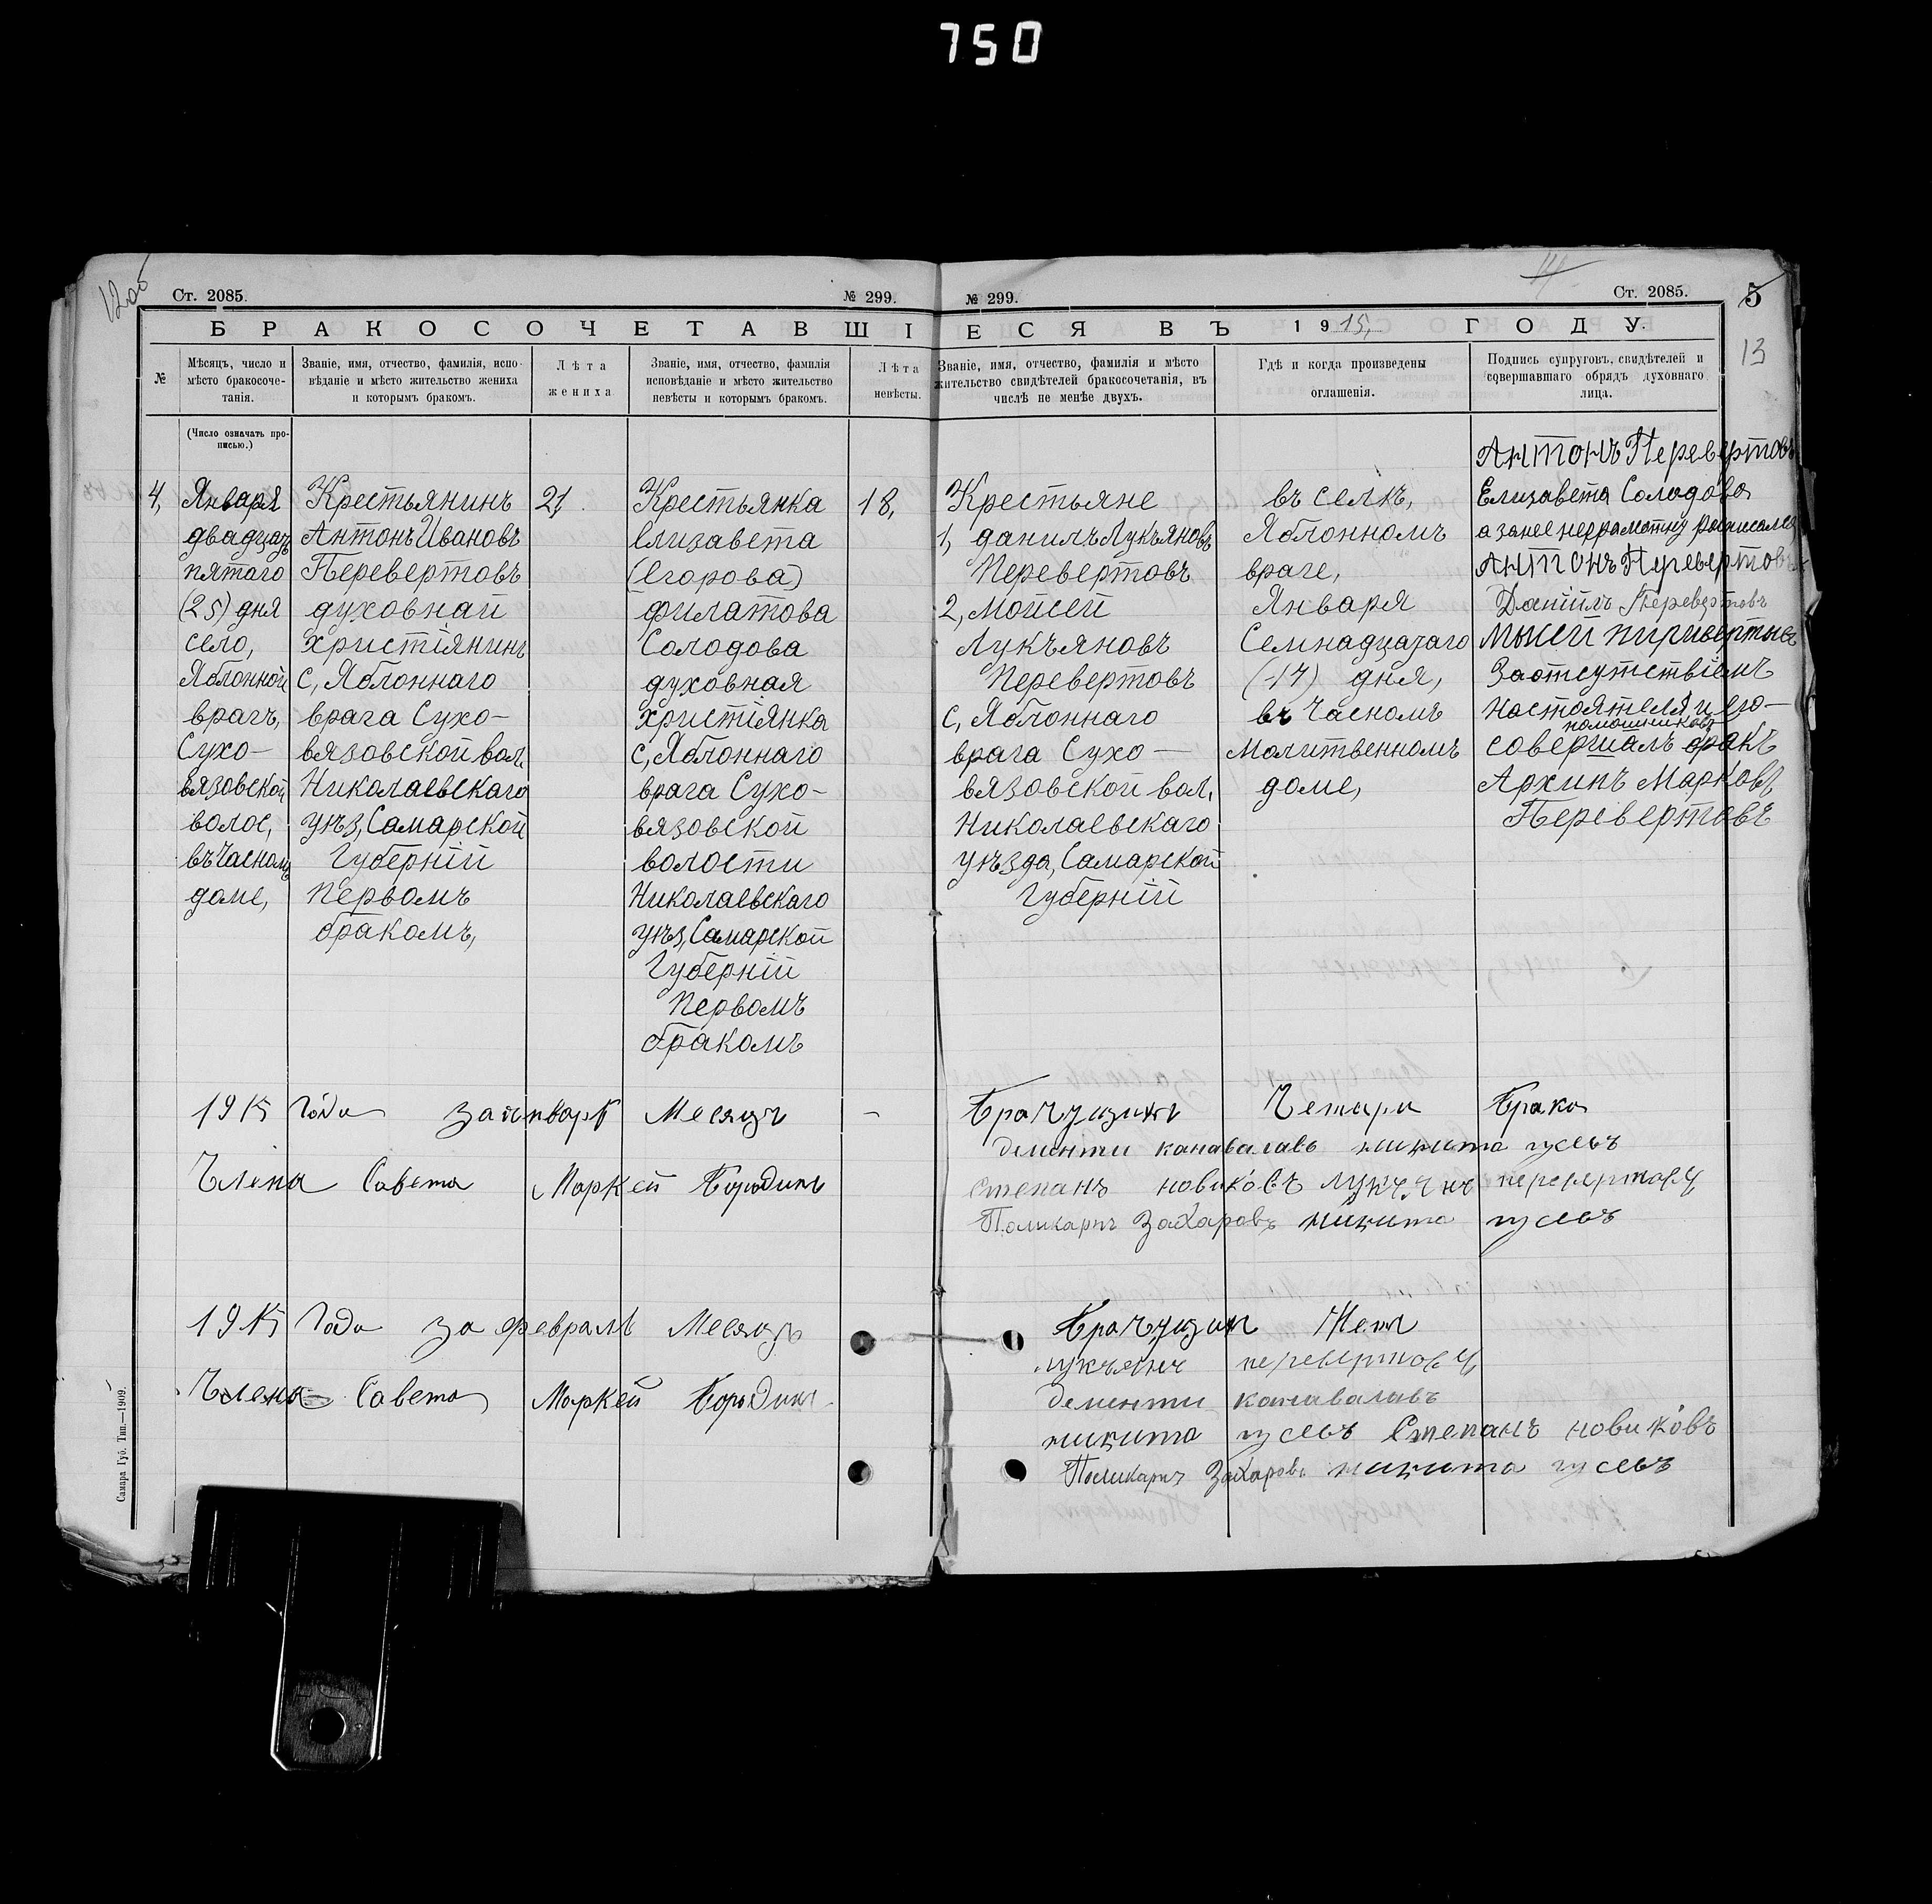 750
12об
Ст. 2085.
№ 299.
№ 299.
Ст. 2085.
5
13
БРАКОСОЧЕТАВШІЕСЯ ВЪ 1915, ГОДУ.
№
Мѣсяцъ, число и
мѣсто бракосоче-
танія.
Званіе, имя, отчество, фамилія, испо-
вѣданіе и мѣсто жительство жениха
и которымъ бракомъ.
Лѣта
жениха
Званіе, имя, отчество, фамилія
исповѣданіе и мѣсто жительство
невѣсты и которымъ бракомъ.
Лѣта
невѣсты.
Званіе, имя, отчество, фамилія и мѣсто
жительство свидѣтелей бракосочетанія, въ
числѣ не менѣе двухъ.
Гдѣ и когда произведены
оглашенія.
Подпись супруговъ, свидѣтелей и
совершавшаго обрядъ духовнаго
лица.
(Число означать про-
писью.)
4,
Января
двадцать
пятаго
(25) дня
село,
Яблонной
врагъ,
Сухо-
вязовской
волос,
въ Часномъ
доме,
Крестьянинъ
Антонъ Ивановъ
Перевертовъ
духовнай
христіянинъ
с, Яблоннаго
врага Сухо-
вязовской вол,
Николаевскаго
уѣз, Самарской
Губерніи
первомъ
бракомъ,
21
Крестьянка
Елизавета
(Егорова)
филатова
Солодова
духовная
христіянка
с, Яблоннаго
врага Сухо-
вязовской
волости
Николаевскаго
уѣз, Самарской
Губерніи
первомъ
бракомъ
18,
Крестьяне
1, данилъ Лукъяновъ
Перевертовъ
2, Мойсей
Лукъяновъ
Перевертовъ
с, Яблоннаго
врага Сухо-
вязовской вол,
Николаевскаго
уѣзда, Самарской
Губерніи
въ селѣ,
Яблонномъ
враге,
Января
Семнадцатаго
(17) дня,
въ Часномъ
Молитвенномъ
доме,
Антонъ Перевертовъ
Елизавета Солодова
а занее неграмотну росписался
Антонъ Перевертовъ
Данiилъ Перевертовъ
Мысей пиривертывъ
За отсутствіемъ
настоятеля и его-
помошниковъ
совершалъ бракъ
Архипъ Марковъ
Перевертовъ
1915 Года за январь Месяцъ -
Члена Совета Маркей Бородинъ
Брачущихъ Четари Брака
дементи канавалавъ никита гусевъ
степанъ новиковъ лукъянъ перевертовъ
Поликарпъ Захаровъ никита гусевъ
1915 Года за февраль Месяцъ
Члена Совета Маркей Бородинъ
Брачущих Нетъ
лукъянъ перевертовъ
дементи канавалавъ
никита гусевъ Степанъ новиковъ
Поликарпъ Захаровъ никита гусевъ
Самара Губ. Тип.—1909.